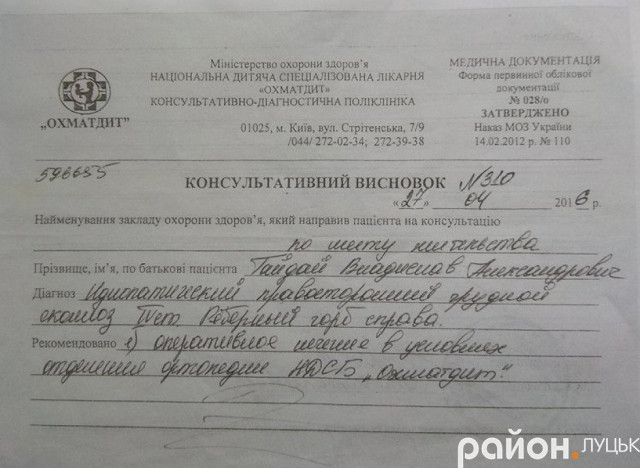 Міністерство охорони здоров'я
НАЦІОНАЛЬНА ДИТЯЧА СПЕЦІАЛІЗОВАНА ЛІКАРНЯ
«ОХМАТДИТ»
КОНСУЛЬТАТИВНО-ДІАГНОСТИЧНА ПОЛІКЛІНІКА
01025, м. Київ, вул. Стрітенська, 7/9
/044/ 272-02-34; 272-39-38
„ОХМАТДИТ"
МЕДИЧНА ДОКУМЕНТАЦІЯ
Форма первинної облікової
документації
№ 028/о
ЗАТВЕРДЖЕНО
Наказ МОЗ України
14.02.2012 р. № 110
596655
КОНСУЛЬТАТИВНИЙ ВИСНОВОК N310
«27» 04 2016 р.
Найменування закладу охорони здоров'я, який направив пацієнта на консультацію
по месту жительства
Прізвище, ім'я, по батькові пацієнта Гайдай Владислав Александрович
Діагноз Идиопатический правосторонний грудной
сколиоз IV ст. Реберный горб справа.
Рекомендовано 1) оперативное лечение в условиях
отделения ортопедии НДСБ „Охматдит".
район.луцьк